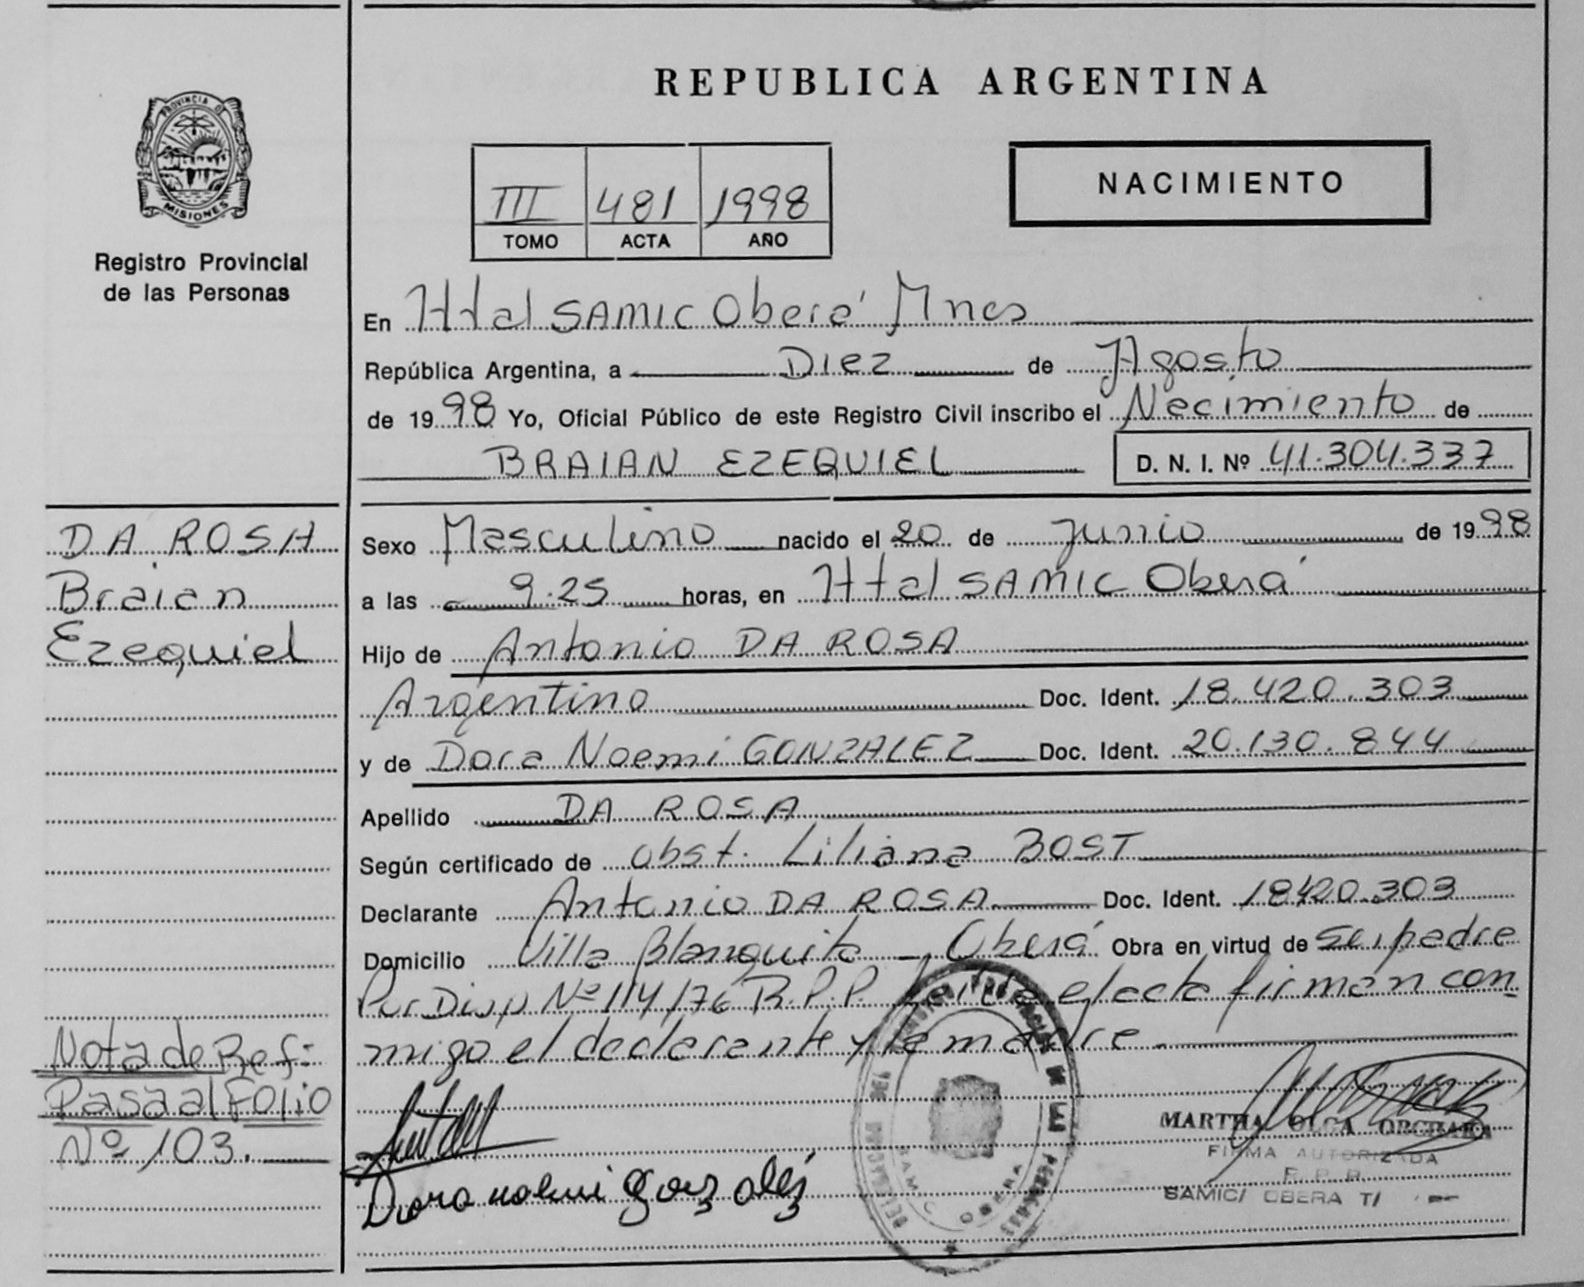 REPUBLICA ARGENTINA
PROVINCIA DE
MISIONES
Registro Provincial
de las Personas
III 481 1998
TOMO ACTA AÑO
NACIMIENTO
En Htal SAMIC Oberá Mnes
República Argentina, a Diez de Agosto
de 1998 Yo, Oficial Público de este Registro Civil inscribo el Nacimiento de
BRAIAN EZEQUIEL D. N. I. Nº 41.304.337
DA ROSA
Braian
Ezequiel
Sexo Masculino nacido el 20 de Junio de 1998
a las 9.25 horas, en Htal SAMIC Oberá
Hijo de Antonio DA ROSA
Argentino Doc. Ident. 18.420.303
y de Dora Noemi GONZALEZ Doc. Ident. 20.130.844
Apellido DA ROSA
Según certificado de Obst. Liliana BOST
Declarante Antonio DA ROSA Doc. Ident. 18420.303
Domicilio Villa Blanquita - Oberá Obra en virtud de ser padre
Por Disp Nº 114/76 R.P.P. efecto firman con
migo el declarante y la madre.
Nota de Ref:
Pasa al Folio
Nº 103.
Dora noemi gonzalez
MARTHA OLGA
FIRMA AUTORIZADA
SAMIC/ OBERA